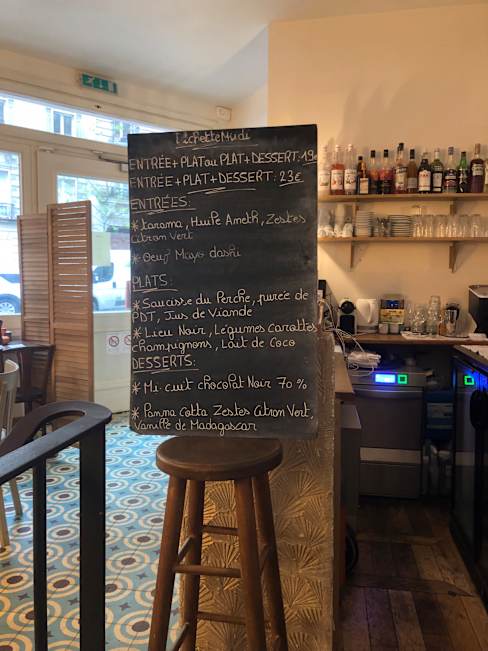 ENTRÉE + PLAT ou PLAT + DESSERT: 19€
ENTRÉE + PLAT + DESSERT: 23€
ENTRÉES:
* Tarama, Huile Aneth, Zestes
Citron Vert
* Oeuf Mayo dashi
PLATS:
* Saucisse du Perche, purée de
PDT, Jus de Viande
* Lieu Noir, Légumes carottes
champignons, Lait de Coco
DESSERTS:
* Mi-cuit chocolat Noir 70 %
* Panna Cotta Zestes Citron Vert,
Vanille de Madagascar